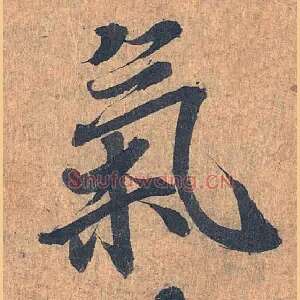 氣
Shufawang.CN